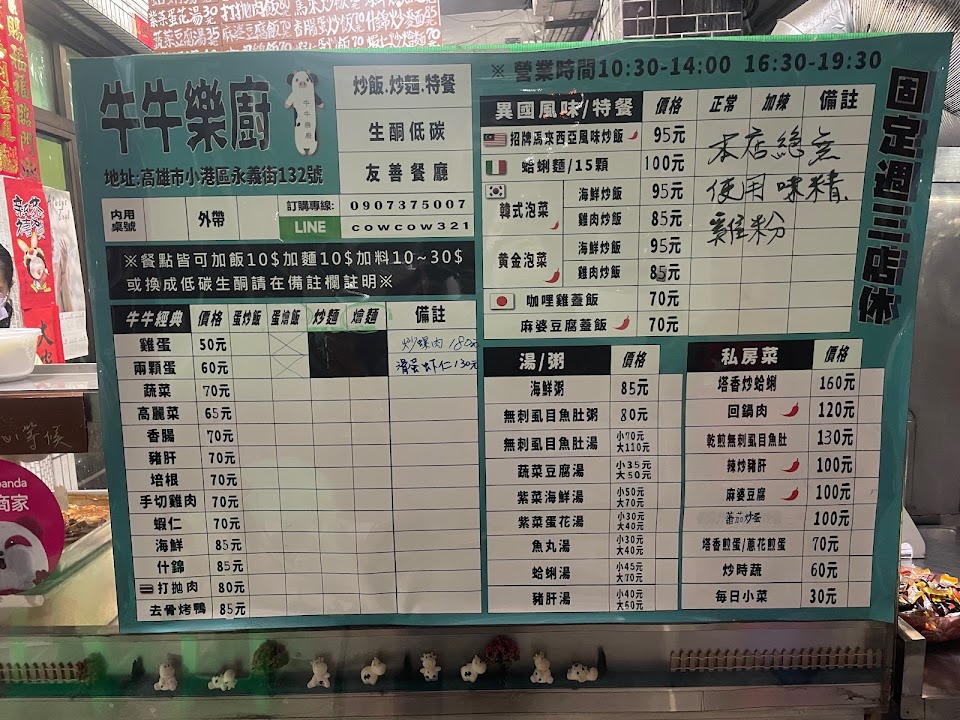 紫菜蛋花湯30
打拋肉飯80
蔬菜豆腐湯35
牛牛樂廚
牛牛樂廚
地址:高雄市小港區永義街132號
炒飯.炒麵.特餐
生酮低碳
友善餐廳
內用桌號
外帶
訂購專線: 0907375007
LINE cowcow321
※餐點皆可加飯10$加麵10$加料10~30$
或換成低碳生酮請在備註欄註明※
牛牛經典 價格 蛋炒飯 蛋燴飯 炒麵 燴麵 備註
雞蛋 50元 炒螺肉 180元
兩顆蛋 60元 滑蛋蝦仁 130元
蔬菜 70元
高麗菜 65元
香腸 70元
豬肝 70元
培根 70元
手切雞肉 70元
蝦仁 70元
海鮮 85元
什錦 85元
打拋肉 80元
去骨烤鴨 85元
※ 營業時間10:30-14:00 16:30-19:30
異國風味/特餐 價格 正常 加辣 備註
招牌馬來西亞風味炒飯 95元
蛤蜊麵/15顆 100元
韓式泡菜 海鮮炒飯 95元
雞肉炒飯 85元
黃金泡菜 海鮮炒飯 95元
雞肉炒飯 85元
咖哩雞蓋飯 70元
麻婆豆腐蓋飯 70元
本店總無
使用味精
雞粉
湯/粥 價格
海鮮粥 85元
無刺虱目魚肚粥 80元
無刺虱目魚肚湯 小70元 大110元
蔬菜豆腐湯 小35元 大50元
紫菜海鮮湯 小50元 大70元
紫菜蛋花湯 小30元 大40元
魚丸湯 小30元 大40元
蛤蜊湯 小45元 大70元
豬肝湯 小40元 大60元
私房菜 價格
塔香炒蛤蜊 160元
回鍋肉 120元
乾煎無刺虱目魚肚 130元
辣炒豬肝 100元
麻婆豆腐 100元
蕃茄炒蛋 100元
塔香煎蛋/蔥花煎蛋 70元
炒時蔬 60元
每日小菜 30元
固定週三店休
等候
panda
商家